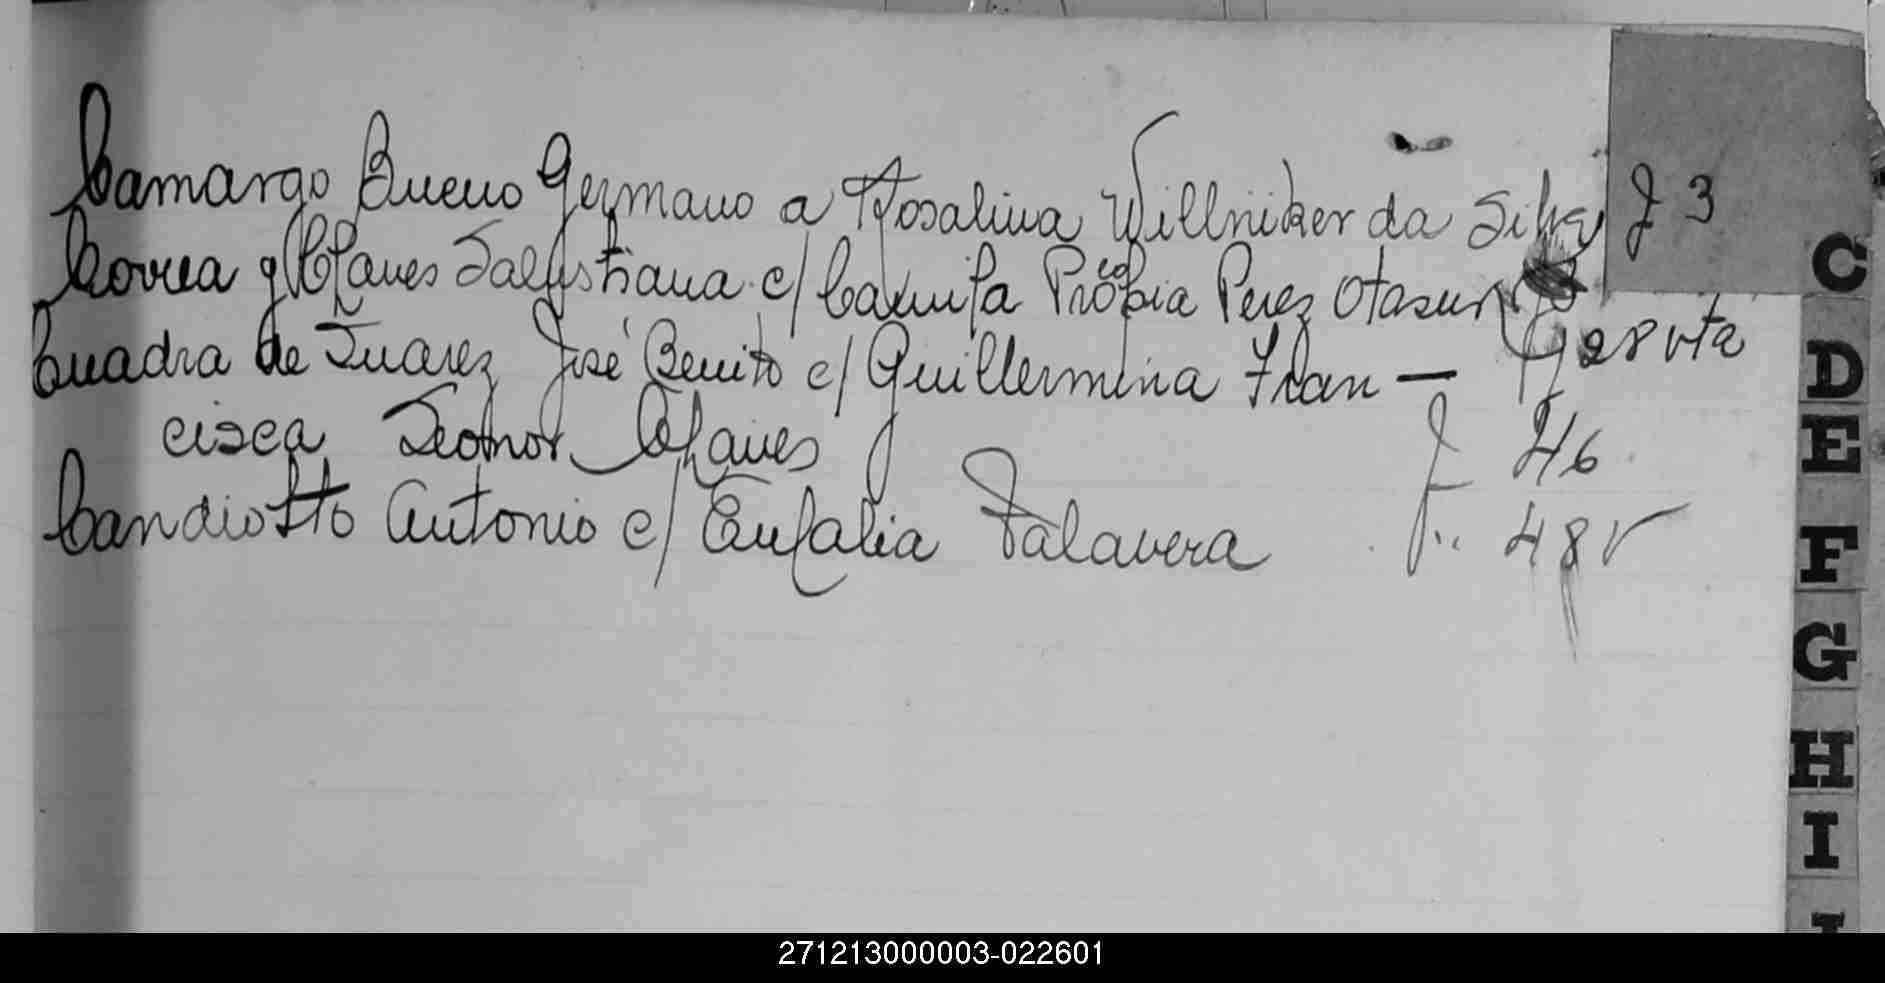 Camargo Bueno Germano a Rosalina Willniker da Silva F 3
Correa y Chaves Salustiana c/ Camila Perez Otasun
Cuadra de Juarez José Benito c/ Guillermina Fran- 28 vta
cisca Leonor Chaves F 46
Candiotto Antonio c/ Eufalia Talavera F.. 48 v
C
D
E
F
G
H
I
271213000003-022601